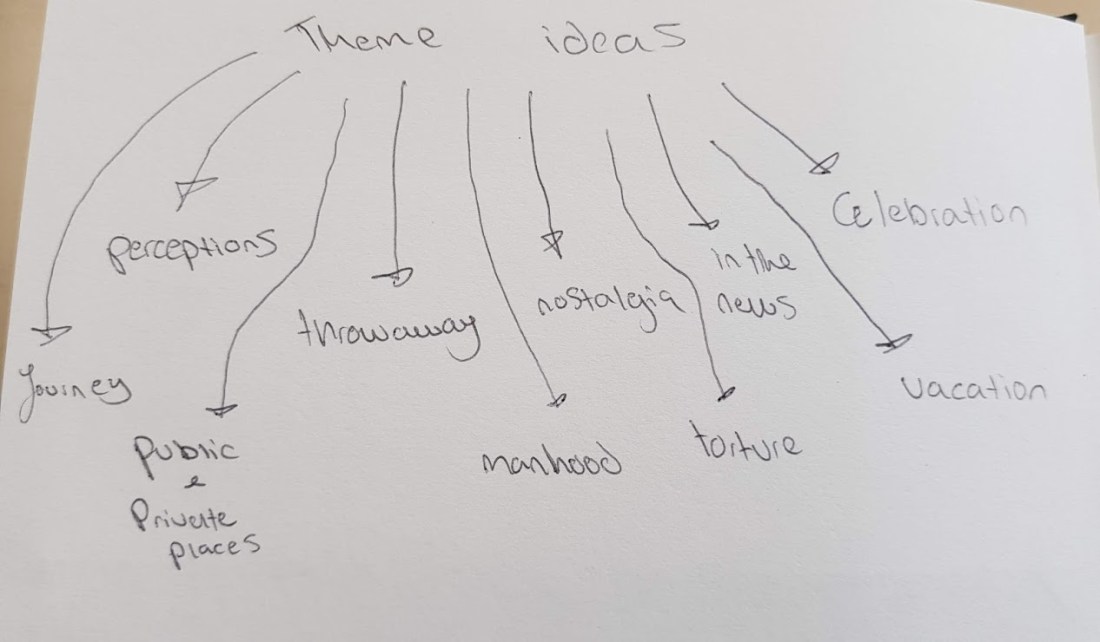 Theme ideas
Celebration
perceptions
in the
news
nostalgia
throwaway
Journey
vacation
public
&
Private
places
manhood
torture